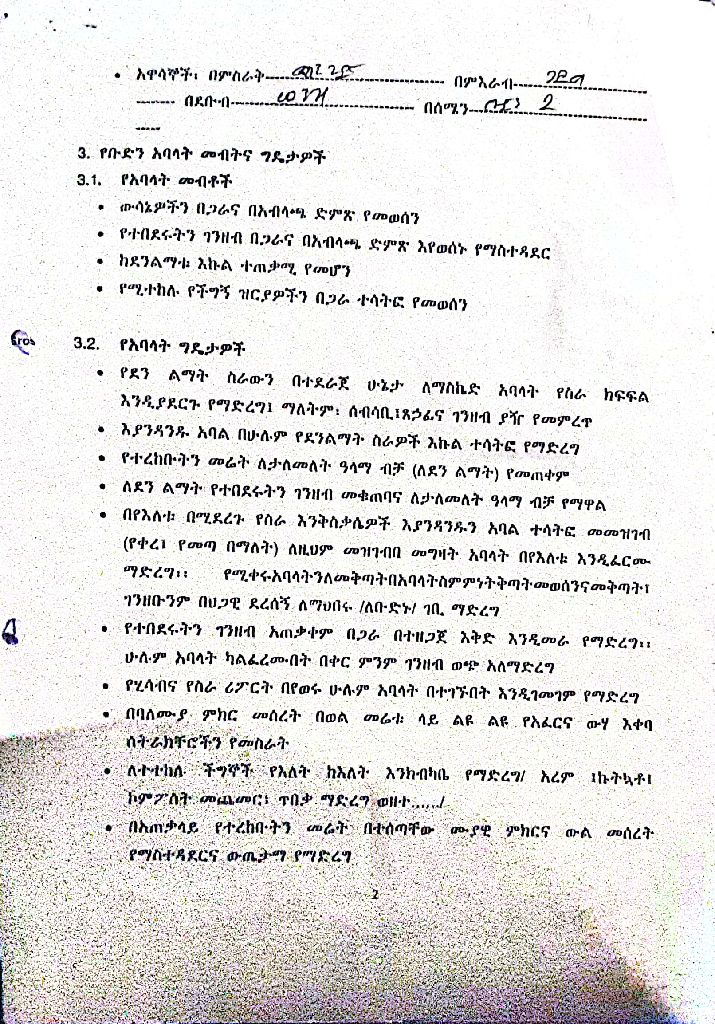 • አዋሳኞች፡ በምስራት---------------- በምእራብ----------------
------- በደቡብ---------------- በሰሜን---------------- 2
-----
3. የቡድን አባላት መብትና ግዴታዎች
3.1. የአባላት መብቶች
• ውሳኔዎችን በጋራና በአብላጫ ድምጽ የመወሰን
• የተበደሩትን ገንዘብ በጋራና በአብላጫ ድምጽ እየወሰኑ የማስተዳደር
• ከደንልማቱ እኩል ተጠቃሚ የመሆን
• የሚተከሉ የችግኝ ዝርያዎችን በጋራ ተሳትፎ የመወሰን
3.2. የአባላት ግዴታዎች
• የደን ልማት ስራውን በተደራጀ ሁኔታ ለማስኬድ አባላት የስራ ክፍፍል
እንዲያደርጉ የማድረግ፤ ማለትም፡ ሰብሳቢ፤ጸኃፊና ገንዘብ ያዥ የመምረጥ
• እያንዳንዱ አባል በሁሉም የደንልማት ስራዎች እኩል ተሳትፎ የማድረግ
• የተረከቡትን መሬት ለታለመለት ዓላማ ብቻ (ለደን ልማት) የመጠቀም
• ለደን ልማት የተበደሩትን ገንዘብ መቁጠባና ለታለመለት ዓላማ ብቻ የማዋል
• በየእለቱ በሚደረጉ የስራ እንቅስቃሴዎች እያንዳንዱን አባል ተሳትፎ መመዝገብ
(የቀረ፤ የመጣ በማለት) ለዚህም መዝገብበ መግዛት አባላት በየእለቱ እንዲፈርሙ
ማድረግ፡፡ የሚቀሩአባላትንለመቅጣትበአባላትስምምነትቅጣትመወሰንናመቅጣት፤
ገንዘቡንም በህጋዊ ደረሰኝ ለማህበሩ /ለቡድኑ/ ገቢ ማድረግ
• የተበደሩትን ገንዘብ አጠቃቀም በጋራ በተዘጋጀ እቅድ እንዲመራ የማድረግ፡፡
ሁሉም አባላት ካልፈረሙበት በቀር ምንም ገንዘብ ወጭ አለማድረግ
• የሂሳብና የስራ ሪፖርት በየወሩ ሁሉም አባላት በተገኙበት እንዲገመገም የማድረግ
• በባለሙያ ምክር መሰረት በወል መሬቱ ላይ ልዩ ልዩ የአፈርና ውሃ እቀባ
ስትራክቸሮችን የመስራት
• ለተተከሉ ችግኞች የእለት ከእለት እንክብካቤ የማድረግ/ አረም ፤ኩትኳቶ፤
ኮምፖስት መጨመር፤ ጥበቃ ማድረግ ወዘተ...../
• በአጠቃላይ የተረከቡትን መሬት በተሰጣቸው ሙያዊ ምክርና ውል መሰረት
የማስተዳደርና ውጤታማ የማድረግ
2